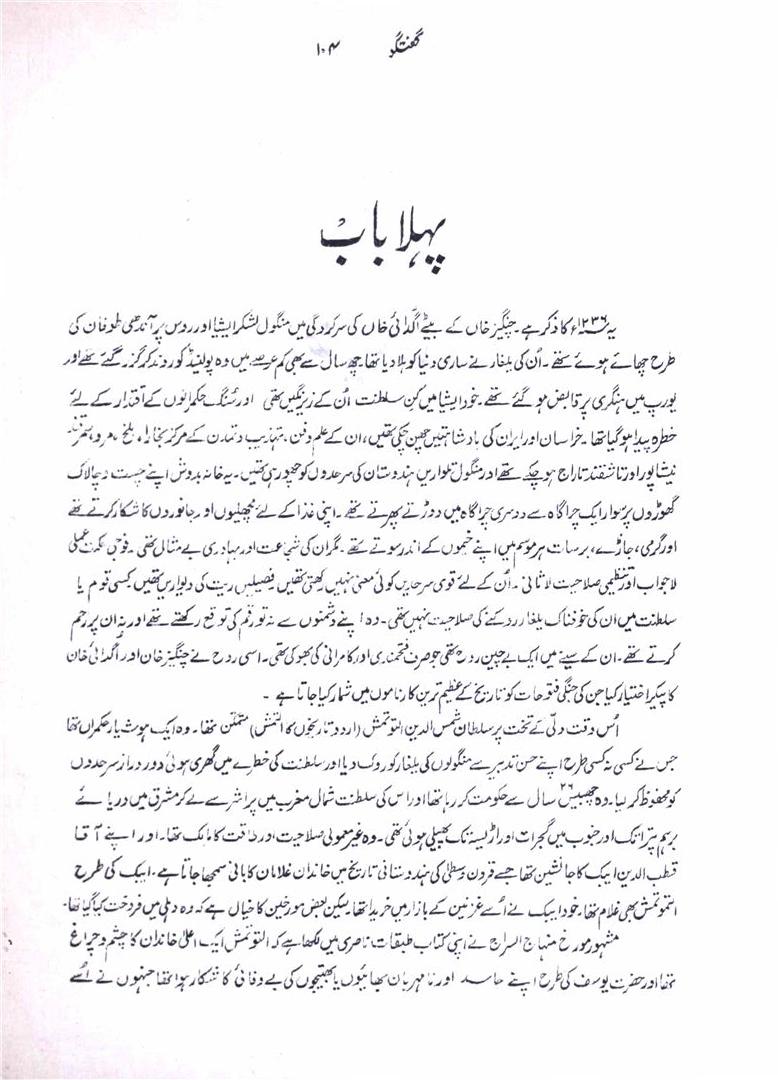 گفتگو ۱۰۴
پہلا باب
یہ ۱۲۳۶ء کا ذکر ہے۔ چنگیز خاں کے بیٹے اُگدائی خاں کی سرکردگی میں منگول لشکر ایشیا اور روس پر آندھی طوفان کی
طرح چھائے ہوئے تھے۔ اُن کی یلغار نے ساری دنیا کو ہلا دیا تھا۔ چھ سال سے بھی کم عرصے میں وہ پولینڈ کو روند کر گزر گئے تھے اور
یورپ میں ہنگری پر قابض ہو گئے تھے۔ خود ایشیا میں کن سلطنت اُن کے زیرنگیں تھی اور سُنگ حکمرانوں کے اقتدار کے لئے
خطرہ پیدا ہو گیا تھا۔ خراسان اور ایران کی بادشاہتیں چھن چکی تھیں، ان کے علم و فن، تہذیب و تمدن کے مرکز بخارا، بلخ، مرو، سمرقند
نیشاپور اور تاشقند تاراج ہو چکے تھے اور منگول تلواریں ہندوستان کی سرحدوں کو چھو رہی تھیں۔ یہ خانہ بدوش اپنے چست و چالاک
گھوڑوں پر سوار ایک چراگاہ سے دوسری چراگاہ میں دوڑتے پھرتے تھے۔ اپنی غذا کے لئے مچھلیوں اور جانوروں کا شکار کرتے تھے
اور گرمی، جاڑے، برسات ہر موسم میں اپنے خیموں کے اندر سوتے تھے۔ مگر ان کی شجاعت اور بہادری بے مثال تھی۔ فوجی حکمت عملی
لاجواب اور تنظیمی صلاحیت لاثانی۔ اُن کے لئے قومی سرحدیں کوئی معنی نہیں رکھتی تھیں۔ فصیلیں ریت کی دیواریں تھیں۔ کسی قوم یا
سلطنت میں ان کی خوفناک یلغار روکنے کی صلاحیت نہیں تھی۔ وہ اپنے دشمنوں سے نہ تو رحم کی توقع رکھتے تھے اور نہ ان پر رحم
کرتے تھے۔ ان کے سینے میں ایک بے چین روح تھی جو صرف فتحمندی اور کامرانی کی بھوکی تھی۔ اسی روح نے چنگیز خان اور اُگدائی خان
کا پیکر اختیار کیا جن کی جنگی فتوحات کو تاریخ کے عظیم ترین کارناموں میں شمار کیا جاتا ہے۔
اُس وقت دلّی کے تخت پر سلطان شمس الدین التوتمش (اردو تاریخوں کا التمش) متمکن تھا۔ وہ ایک ہوشیار حکمراں تھا
جس نے کسی نہ کسی طرح اپنے حسن تدبیر سے منگولوں کی یلغار کو روک دیا اور سلطنت کی خطرے میں گھری ہوئی دور دراز سرحدوں
کو محفوظ کر لیا۔ وہ چھبیس ۲۶ سال سے حکومت کر رہا تھا اور اس کی سلطنت شمال مغرب میں پراشر سے لے کر مشرق میں دریائے
برہم پترا تک اور جنوب میں گجرات اور اڑیسہ تک پھیلی ہوئی تھی۔ وہ غیر معمولی صلاحیت اور طاقت کا مالک تھا۔ اور اپنے آقا
قطب الدین ایبک کا جانشین تھا جسے قرون وسطیٰ کی ہندوستانی تاریخ میں خاندان غلامان کا بانی سمجھا جاتا ہے۔ ایبک کی طرح
التوتمش بھی غلام تھا۔ خود ایبک نے اُسے غزنین کے بازار میں خریدا تھا۔ لیکن بعض مورخین کا خیال ہے کہ وہ دہلی میں فروخت کیا گیا تھا۔
مشہور مورخ منہاج السراج نے اپنی کتاب طبقات ناصری میں لکھا ہے کہ التوتمش ایک اعلیٰ خاندان کا چشم و چراغ
تھا اور حضرت یوسف کی طرح اپنے حاسد اور نامہربان بھائیوں یا بھتیجوں کی بے وفائی کا شکار ہوا تھا جنہوں نے اُسے